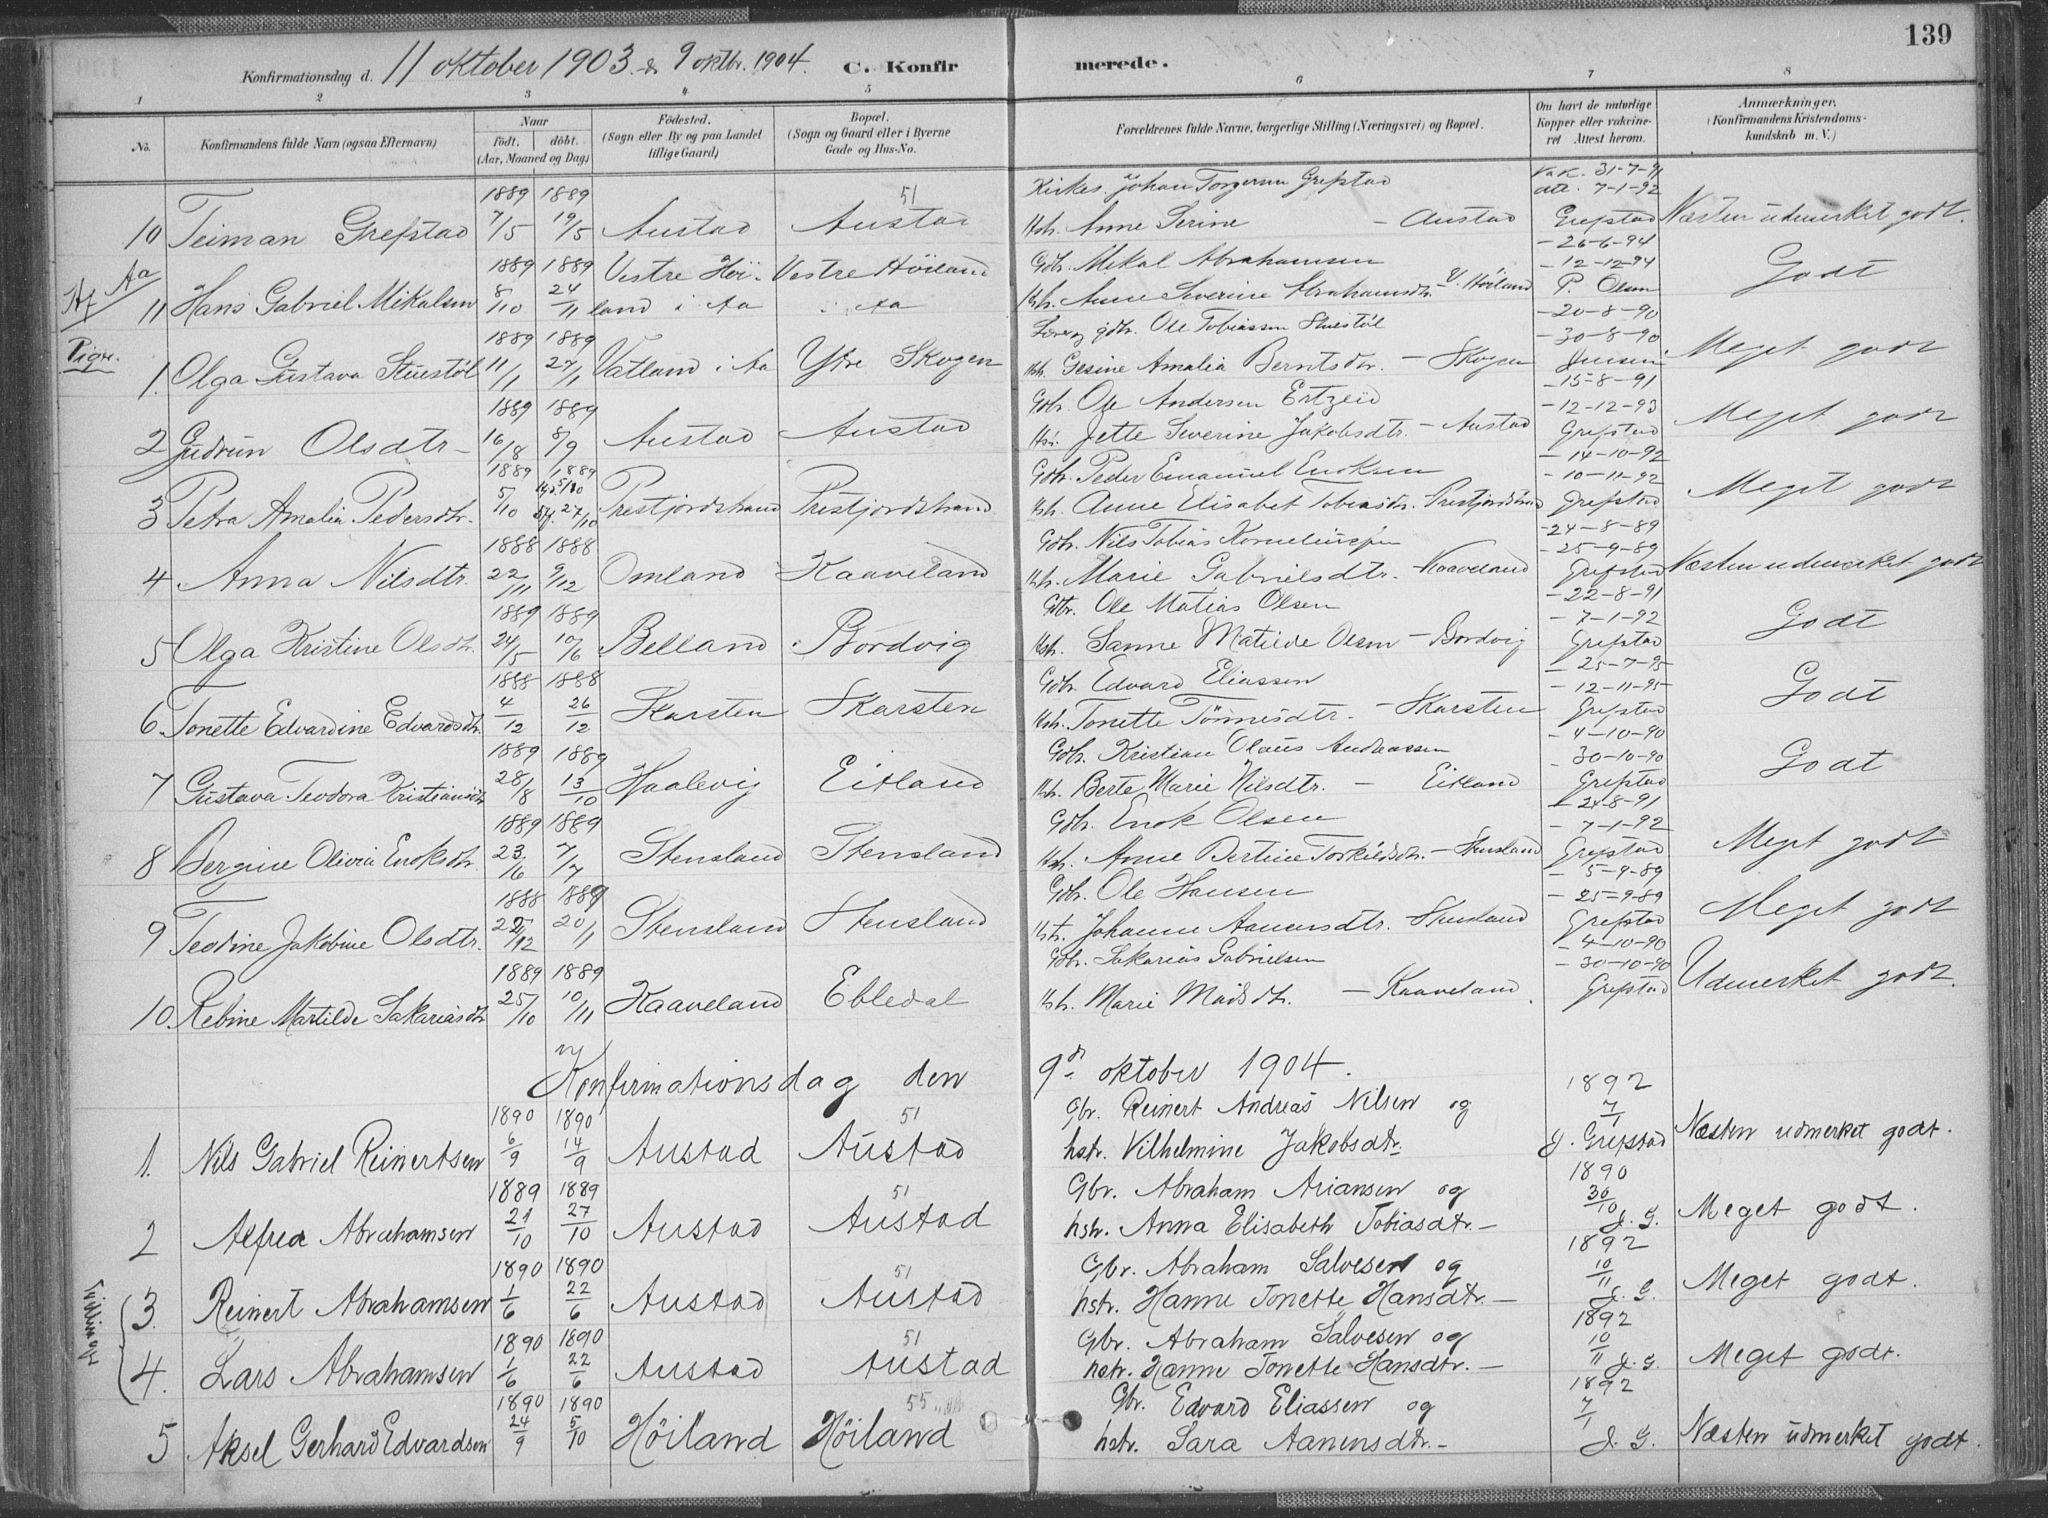 139
Konfirmationsdag d. 11 oktober 1903 & 9 oktbr. 1904. C. Konfir merede.
1 2 3 4 5 6 7 8
No. Konfirmandens fulde Navn (ogsaa Efternavn) Naar födt. döbt. (Aar, Maaned og Dag) Födested. (Sogn eller By og paa Landet tillige Gaard) Bopæl. (Sogn og Gaard eller i Byerne Gade og Hus-No. Forældrenes fulde Navne, borgerlige Stilling (Næringsvei) og Bopæl. Om havt de naturlige Kopper eller vakcineret Attest herom. Anmærkninger. (Konfirmandens Kristendomskundskab m. V.)
1889 1889 51 Kirkes. Johan Torgersen Grefstad Vak. 31-7-91
att. 7-1-92
10 Teiman Grefstad 7/5 19/5 Austad Austad Hst. Anne Serine - Austad Grefstad Næsten udmerket godt.
1889 1889 Vestre Höi- Vestre Höiland Gdbr. Mikal Abrahamsen - 26-6-94
- 12-12-94
Aa 11 Hans Gabriel Mikalsen 8/10 24/11 land i Aa i Aa Hst. Anne Severine Abrahamsdtr. V. Höiland P. Olsen Godt
Piger. 1889 1889 Lærer og gdbr. Ole Tobiassen Stuestöl - 20-8-90
- 30-8-90
1. Olga Gustava Stuestöl 11/1 27/1 Vatland i Aa Ytre Skogen Hst. Gesine Amalia Berntsdr. - Skogen Jensen Meget godt
1889 1889 Gdbr. Ole Andersen Ertzeid - 15-8-91
- 12-12-93
2 Gudrun Olsdtr - 16/8 8/9 Austad Austad Hst. Jette Severine Jakobsdtr. - Austad Grefstad Meget godt
1889 1889 Gdbr. Peder Emanuel Enoksen - 14-10-92
- 10-11-92
3 Petra Amalia Pedersdtr. 5/10 27/10 Prestjordstrand Prestjordstrand Hst. Anne Elisabet Tobiasdtr. Prestjordstrand Grefstad Meget godt
1888 1888 Gdbr. Nils Tobias Korneliussen - 24-8-89
- 25-9-89
4 Anna Nilsdtr. 22/11 9/12 Omland Kaaveland Hst. Marie Gabrielsdtr. - Kaaveland Grefstad Næsten udmerket godt
1889 1889 Gdbr. Ole Matias Olsen - 22-8-91
- 7-1-92
5 Olga Kristine Olsdtr. 24/5 10/6 Belland Bordvig Hst. Sanne Matilde Olsen - Bordvig Grefstad Godt
1888 1888 Gdbr Edvard Eliassen - 25-7-95
- 12-11-95
6. Tonette Edvardine Edvardsdtr. 4/12 26/12 Skarsten Skarsten Hst. Tonette Tönnesdtr. - Skarsten Grefstad Godt
1889 1889 Gdbr. Kristian Olaus Andreassen - 4-10-90
30-10-90
7 Gustava Teodora Kristiansdtr 28/8 13/10 Haalevig Eitland Hst. Berte Marie Nilsdtr. - Eitland Grefstad Godt
1889 1889 Gdbr. Enok Olsen - 24-8-91
- 7-1-92
8 Bergine Olivia Enoksdtr. 23/6 7/7 Stensland Stensland Hst. Anne Bertine Torkildsdtr. - Stensland Grefstad Meget godt
1888 1889 Gdbr. Ole Hansen - 5-9-89
- 25-9-89
9 Teodine Jakobine Olsdtr. 22/12 20/1 Stensland Stensland Hst. Johanne Aanensdtr. Stensland Grefstad Meget godt
1889 1889 Gdbr. Sakarias Gabrielsen - 4-10-90
- 30-10-90
10. Rebine Martilde Sakariasdtr 25/10 10/11 Kaaveland Ebledal Hst. Marie Madsdtr. - Kaaveland Grefstad Udmerket godt.
Konfirmationsdag den 9de oktober 1904.
1890 1890 51 Gbr. Reinert Andreas Nilsen og 1892
7/1
1. Nils Gabriel Reinertsen 6/9 14/9 Austad Austad hstr. Vilhelmine Jakobsdtr J. Grefstad Næsten udmerket godt.
1889 1889 51 Gbr. Abraham Ariansen og 1890
30/10
2 Alfred Abrahamsen 21/10 27/10 Austad Austad hstr. Anna Elisabeth Tobiasdtr. - J. G. Meget godt.
1890 1890 51 Gbr. Abraham Salvesen og 1892
10/11
Tvillinger 3. Reinert Abrahamsen 1/6 22/6 Austad Austad hstr. Hanne Tonette Hansdtr. - J. G. Meget godt.
1890 1890 51 Gbr. Abraham Salvesen og 1892
10/11
4. Lars Abrahamsen 1/6 22/6 Austad Austad hstr. Hanne Tonette Hansdtr. - J. G. Meget godt.
1890 1890 55 Gbr. Edvard Eliassen og 1892
7/1
5 Aksel Gerhard Edvardsen 24/9 5/10 Höiland Höiland hstr. Sara Aanensdtr. - J. G. Næsten udmerket godt.